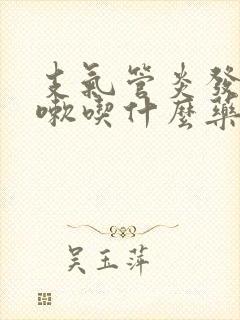 支氣管炎發
嗽喫什麼藥
吴玉萍